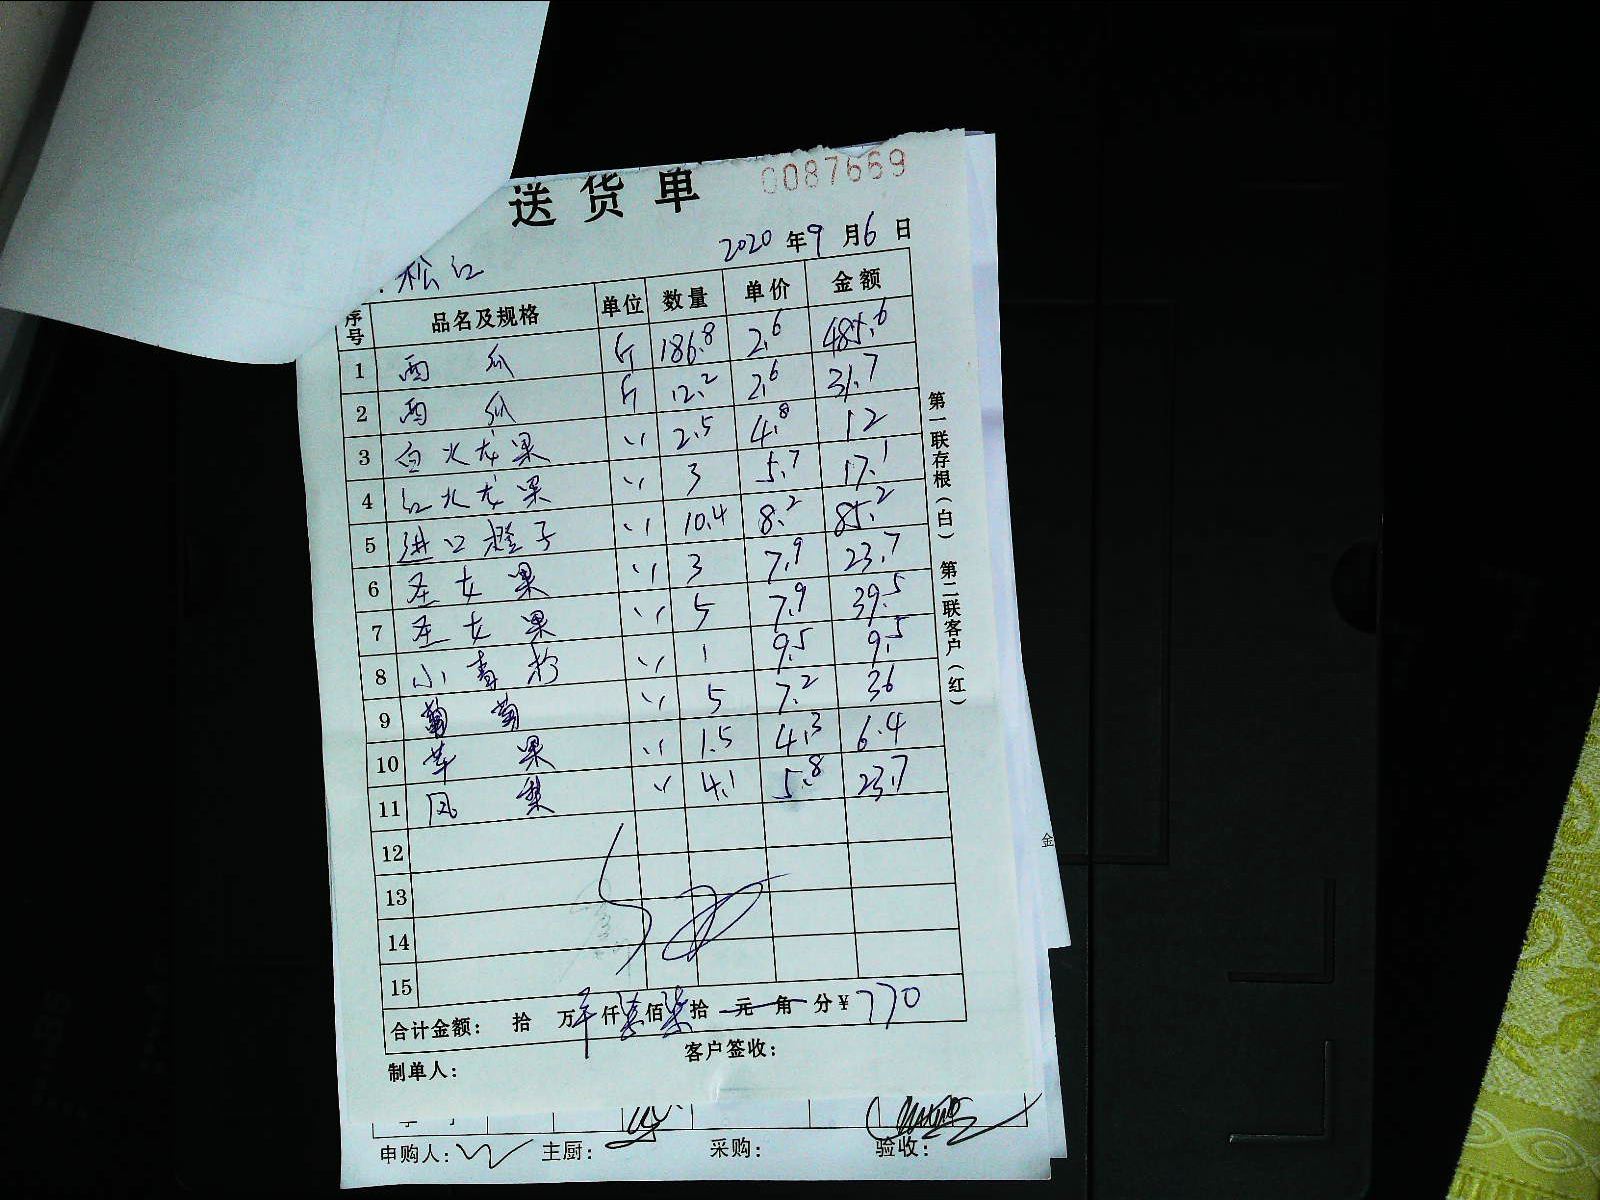 送货单 0087669
2020年9月6日
松江
序号 品名及规格 单位 数量 单价 金额
1 西瓜 斤 186.8 2.6 485.6
2 西瓜 斤 12.2 2.6 31.7
3 白火龙果 〃 2.5 4.8 12
4 红火龙果 〃 3 5.7 17.1
5 进口橙子 〃 10.4 8.2 85.2
6 圣女果 〃 3 7.9 23.7
7 圣女果 〃 5 7.9 39.5
8 小青柠 〃 1 9.5 9.5
9 葡萄 〃 5 7.2 36
10 苹果 〃 1.5 4.3 6.4
11 凤梨 〃 4.1 5.8 23.7
12
13
14
15
合计金额： 拾 万 仟柒佰柒拾 元 角 分¥770
制单人： 客户签收：
第一联存根（白） 第二联客户（红）
申购人： 主厨： 采购： 验收：
金